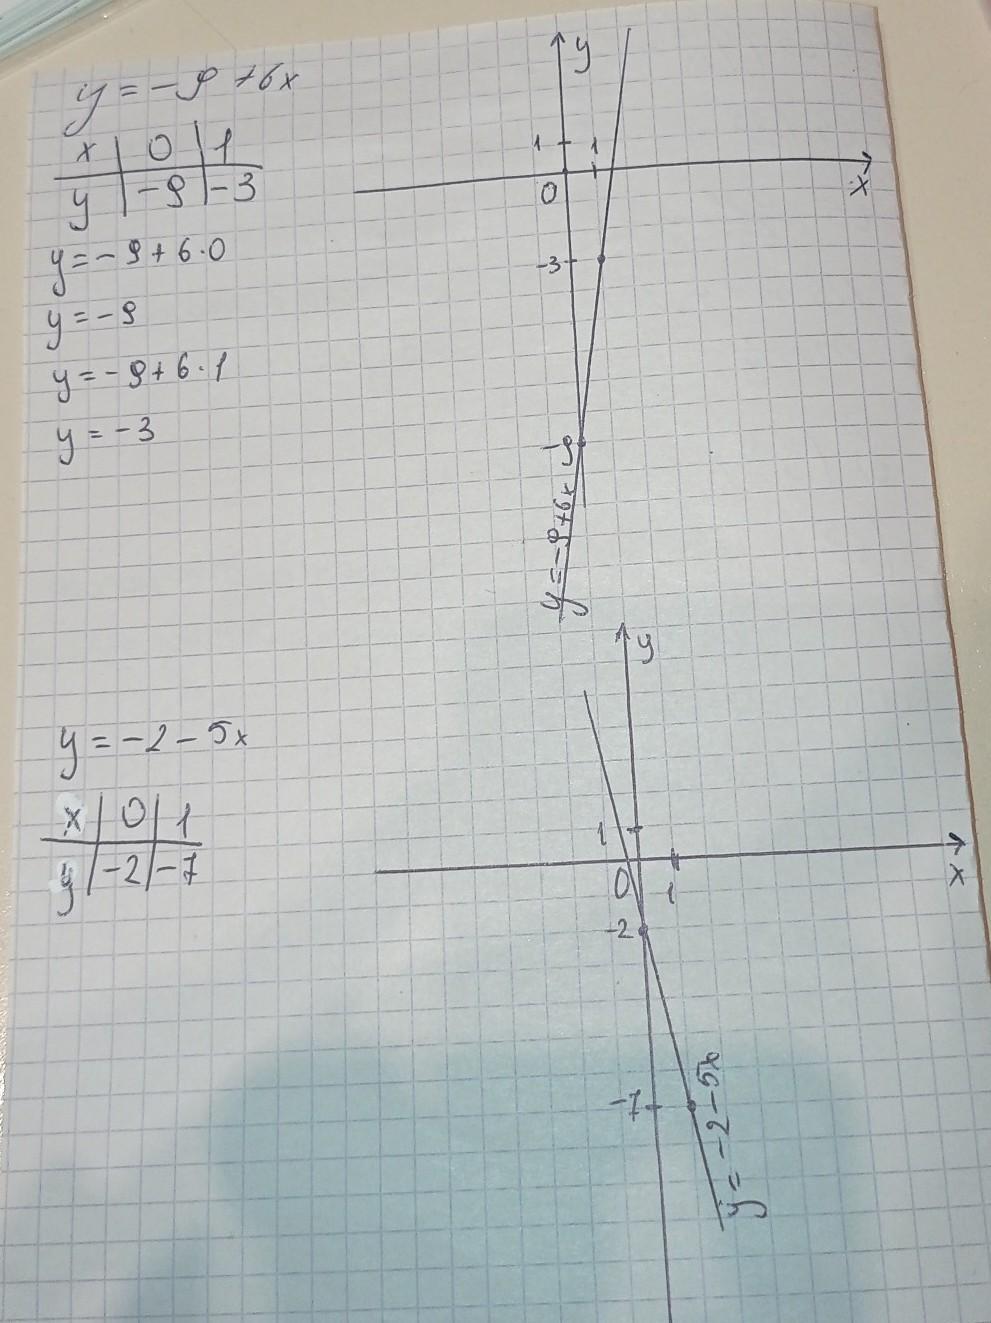 y = -9 + 6x
x | 0 | 1
y | -9 | -3
y = -9 + 6·0
y = -9
y = -9 + 6·1
y = -3
y
1
1
0
x
-3
-9
y = -9 + 6x
y = -2 - 5x
x | 0 | 1
y | -2 | -7
y
1
0
1
x
-2
-7
y = -2 - 5x